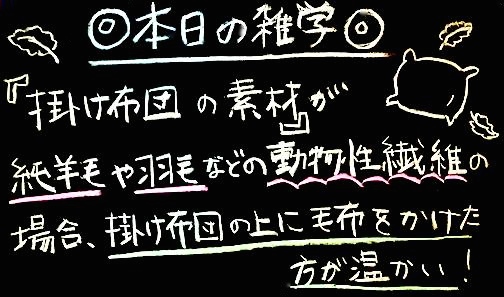 ◎本日の雑学◎
『掛け布団の素材』が
純羊毛や羽毛などの動物性繊維の
場合、掛け布団の上に毛布をかけた
方が温かい！